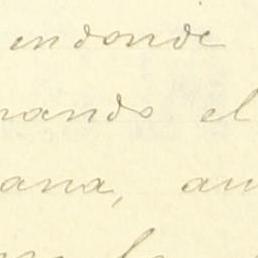 en donde
nando el
ana, au